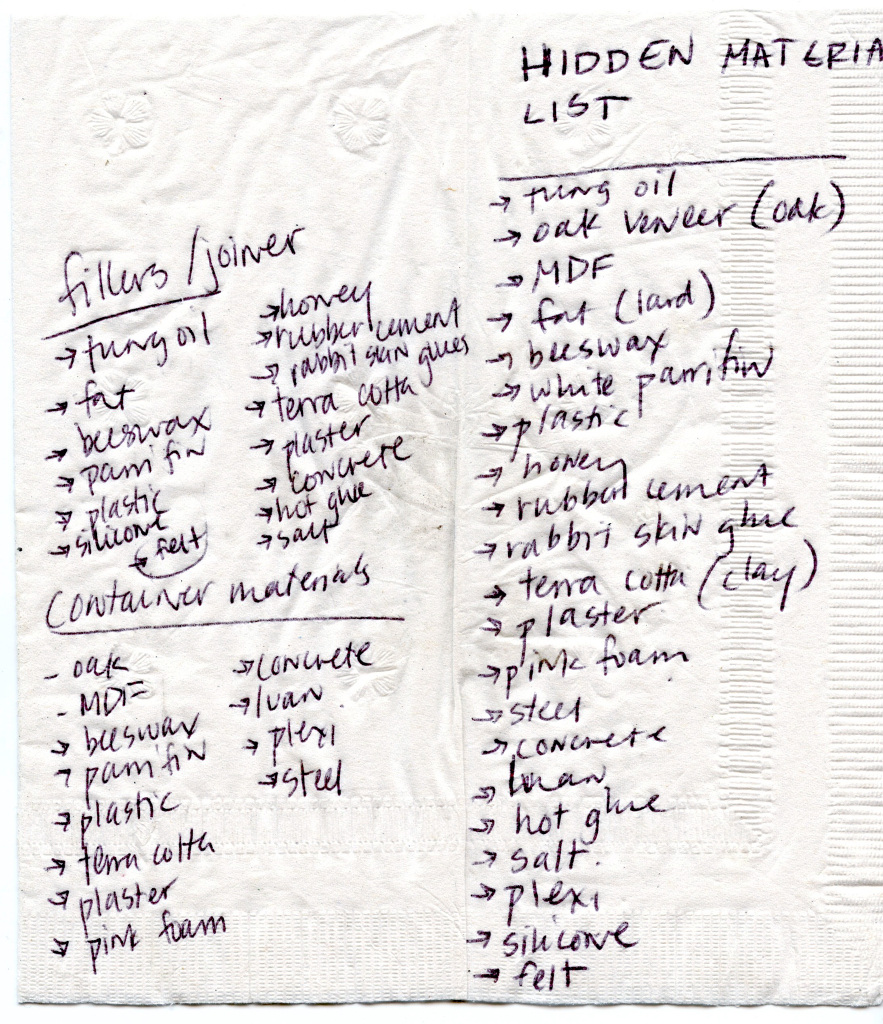 HIDDEN MATERIA
LIST
→ tung oil
→ oak veneer (oak)
→ MDF
→ fat (lard)
→ beeswax
→ white parrifin
→ plastic
→ honey
→ rubber cement
→ rabbit skin glue
→ terra cotta (clay)
→ plaster
→ pink foam
→ steel
→ concrete
→ luan
→ hot glue
→ salt.
→ plexi
→ silicone
→ felt
fillers/joiner
→ tung oil
→ fat
→ beeswax
→ parrifin
→ plastic
→ silicone
→ felt
→ honey
→ rubber cement
→ rabbit skin glues
→ terra cotta
→ plaster
→ concrete
→ hot glue
→ salt
Container materials
- oak
- MDF
→ beeswax
→ parrifin
→ plastic
→ terra cotta
→ plaster
→ pink foam
→ concrete
→ luan
→ plexi
→ steel